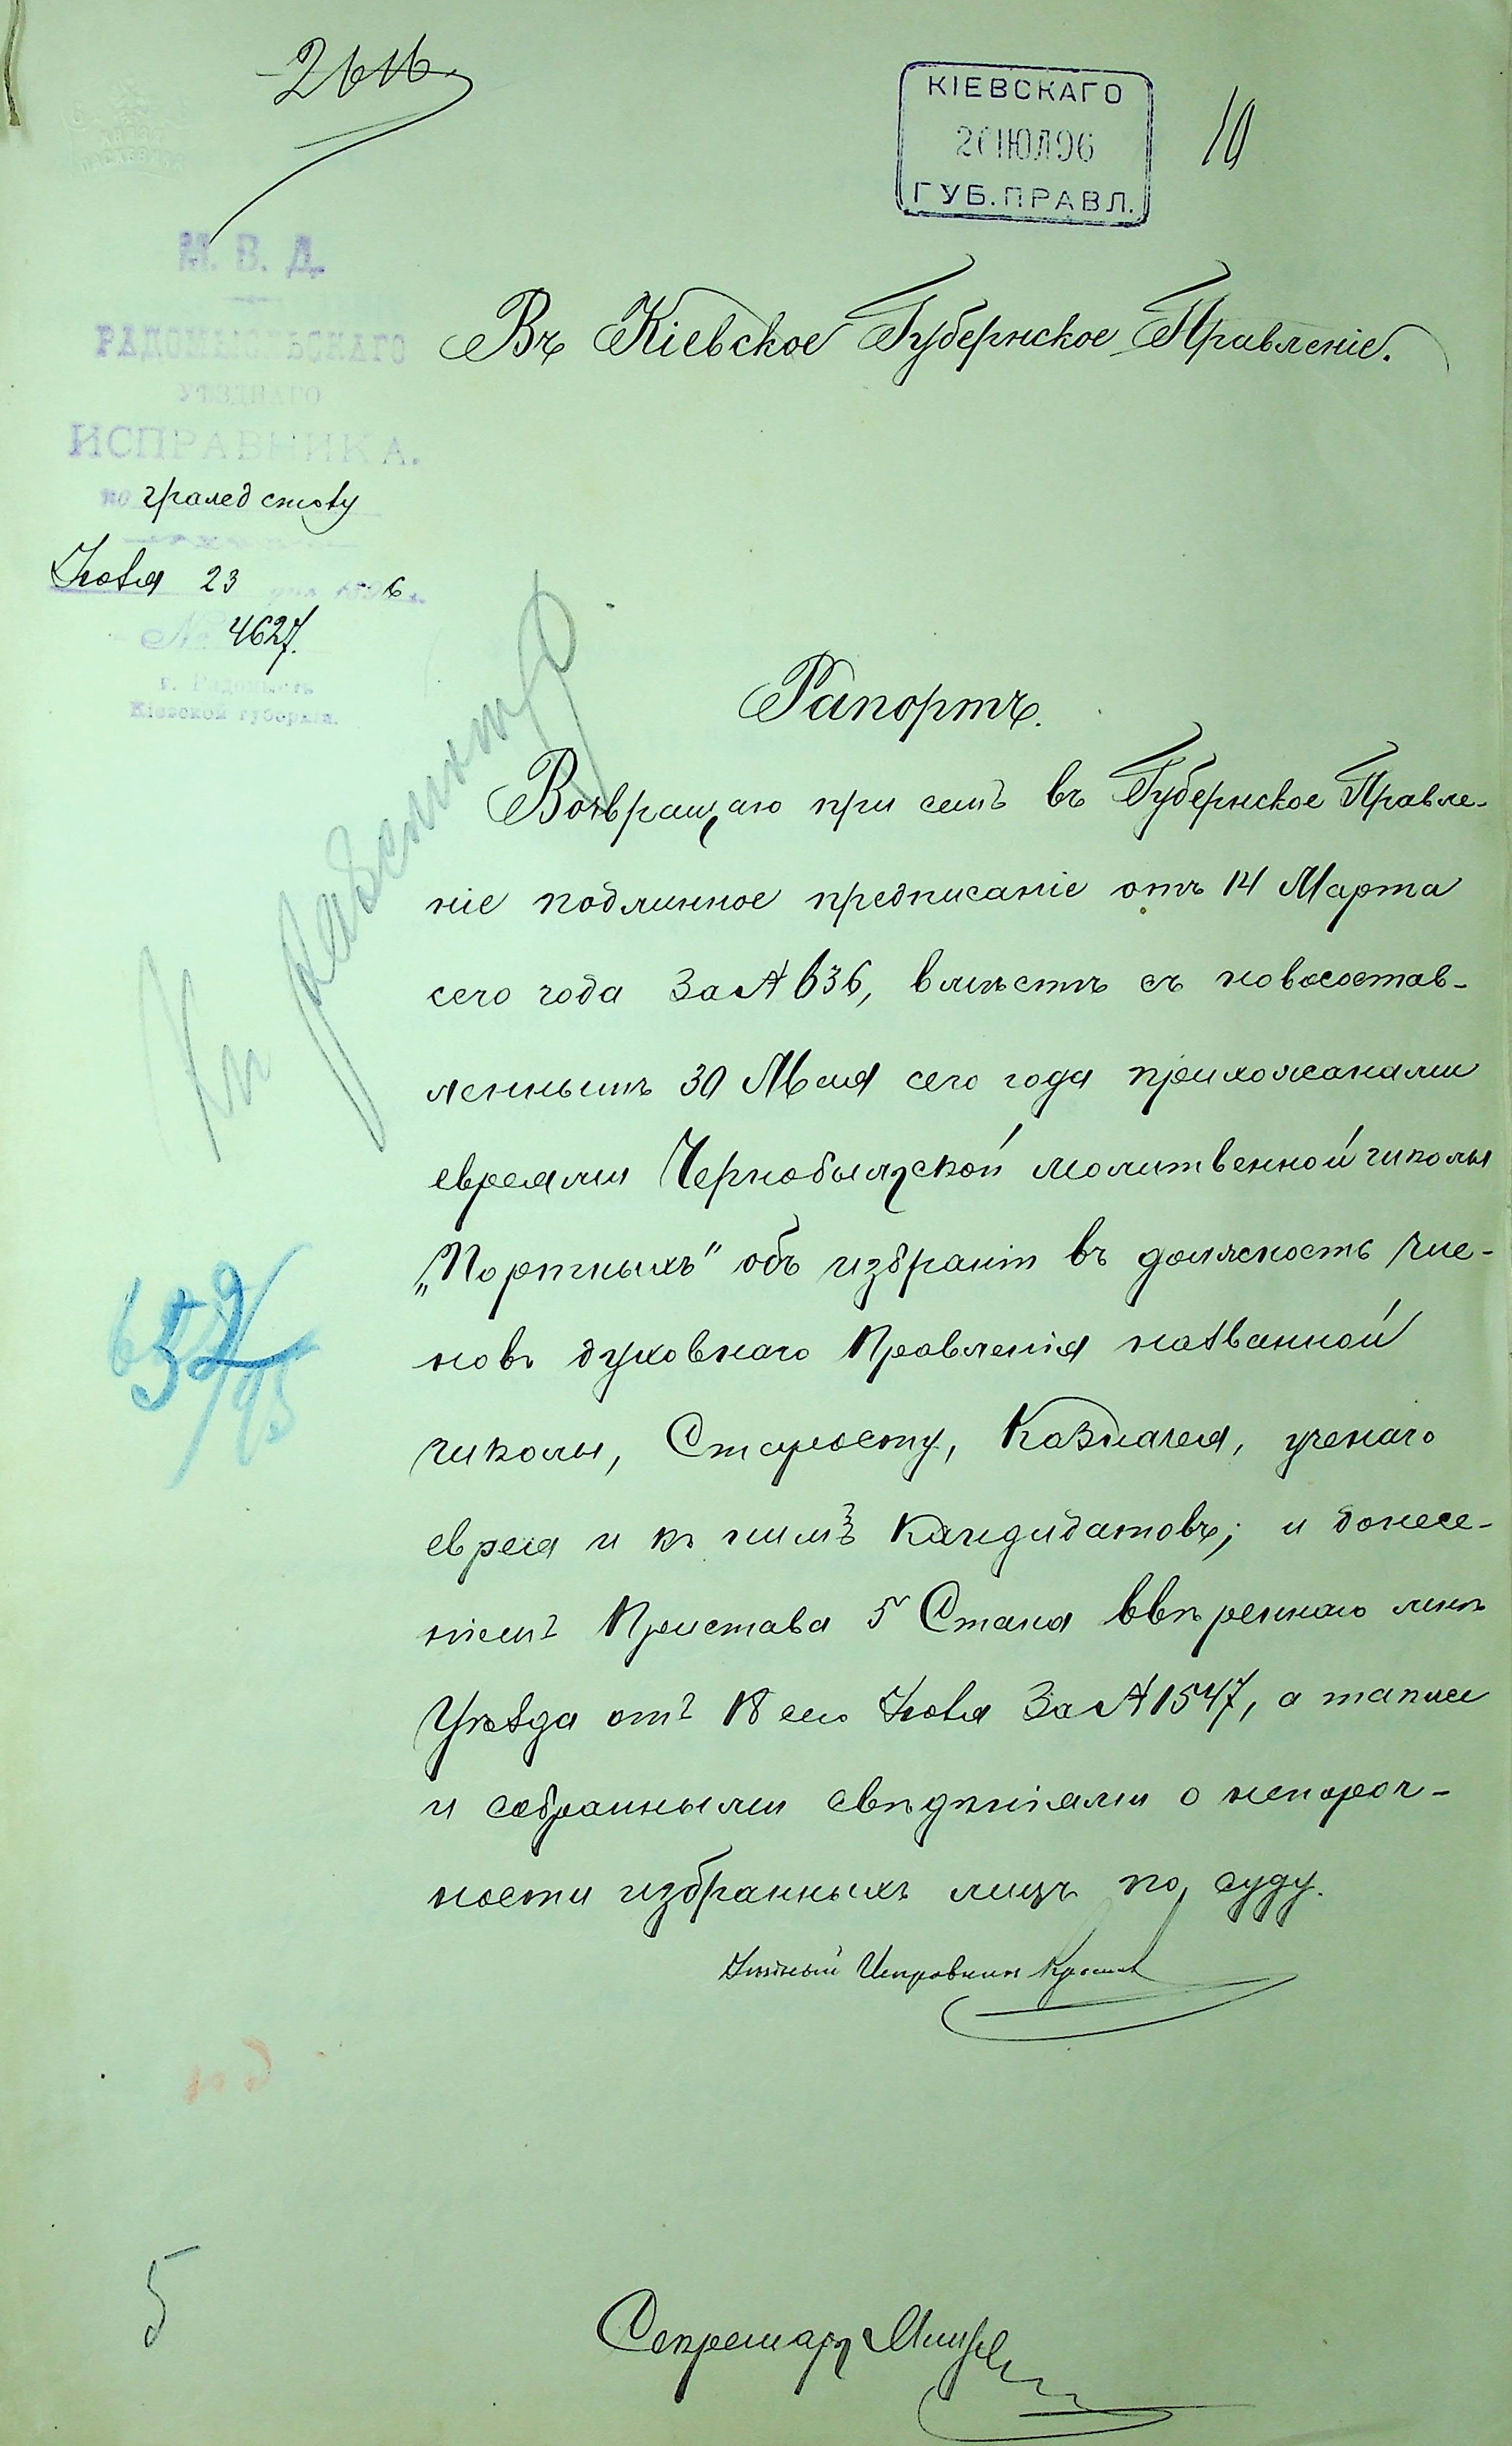 2616.
КІЕВСКАГО
ІЮЛ96
ГУБ.ПРАВЛ.
10
М. В. Д.
РАДОМЫСЛЬСКАГО
УѢЗДНАГО
ИСПРАВНИКА.
по
23
№ 4627.
г. Радомысль
Кіевской губерніи.
Въ Кіевское Губернское Правленіе.
Рапортъ.
Возвращаю при семъ въ Губернское Правле-
ніе подлинное предписаніе отъ 14 Марта
сего года За № 636, вмѣстѣ съ новосостав-
леннымъ 30 Мая сего года прихожанами
евреями Чернобыльской молитвенной школы
„Портныхъ" объ избраніи въ должность чле-
новъ духовнаго Правленія названной
школы, Старосту, Казначея, ученаго
еврея и къ нимъ Кандидатовъ; и донесе-
ніемъ Пристава 5 Стана ввѣреннаго мнѣ
Уѣзда отъ 18 сего За № 1547, а также
и собранными свѣдѣніями о непороч-
ности избранныхъ лицъ по суду.
Уѣздный Исправникъ
652/95
5
Секретарь